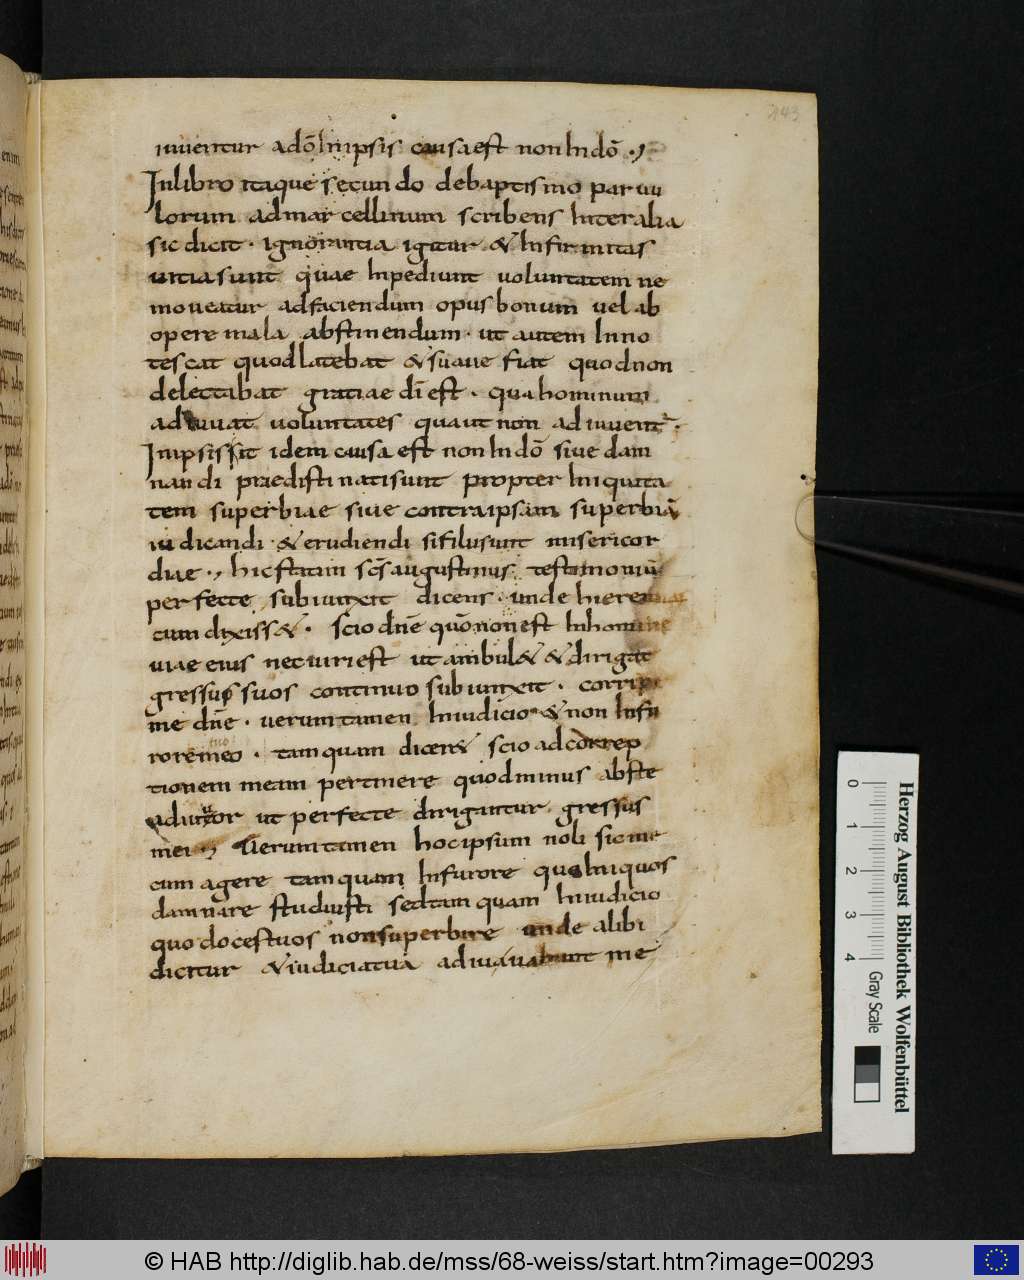 143
iuuentur adō Inipsis causa est non Indō .,
Inlibro itaque secundo debaptismo paruu
lorum admarcellinum scribens Interalia
sic dicit . ignorantia igitur & Infirmitas
uitia sunt quae Inpediunt uoluntatem ne
moueatur adfaciendum opus bonum uel ab
opere mala abstinendum . ut autem Inno
tescat quod latebat & suaue fiat quod non
delectabat gratiae dī est . qua hominum
adiuuat uoluntates qua ut non adiuuent .
Inipsis sit idem causa est non Indō siue dam
nandi praedistinati sunt propter Iniquita
tem superbiae siue contra ipsam superbiā
iudicandi & erudiendi si filii sunt misericor
diae ., hic statim scs augustinus testimoniū
perfecte subiunxit dicens . unde hieremias
cum dixiss& . scio dne quō non est Inhomine
uiae eius nec uiri est ut ambul& & dirigat
gressus suos continuo subiunxit . corripe
me dne . uerum tamen Iniudicio & non Infu
rore meo . tamquam dicer& scio ad correp
tionem meam pertinere quod minus abste
adiuuor ut perfecte dirigantur gressus
mei Uerum tamen hoc ipsum noli sic me
cum agere tamquam Infurore quo Iniquos
damnare studuisti sed tamquam Iniudicio
quo doces tuos non superbire unde alibi
dicitur & iudicia tua adiuuabunt me
Herzog August Bibliothek Wolfenbüttel
0 1 2 3 4 Gray Scale
© HAB http://diglib.hab.de/mss/68-weiss/start.htm?image=00293